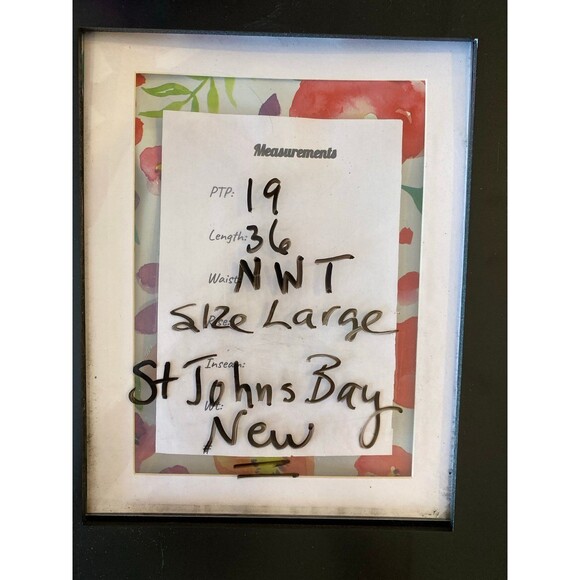 Measurements
PTP: 19
Length: 36
Waist: NWT
Size Large
Inseam:
St Johns Bay
Wt:
New